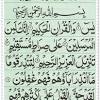 بِسْمِ اللّٰهِ الرَّحْمٰنِ الرَّحِيْمِ
يٰسٓ وَالْقُرْاٰنِ الْحَكِيْمِ اِنَّكَ لَمِنَ
الْمُرْسَلِيْنَ عَلٰى صِرَاطٍ مُّسْتَقِيْمٍ
تَنْزِيْلَ الْعَزِيْزِ الرَّحِيْمِ لِتُنْذِرَ قَوْمًا
مَّآ اُنْذِرَ اٰبَآؤُهُمْ فَهُمْ غٰفِلُوْنَ
لَقَدْ حَقَّ الْقَوْلُ عَلٰٓى اَكْثَرِهِمْ فَهُمْ